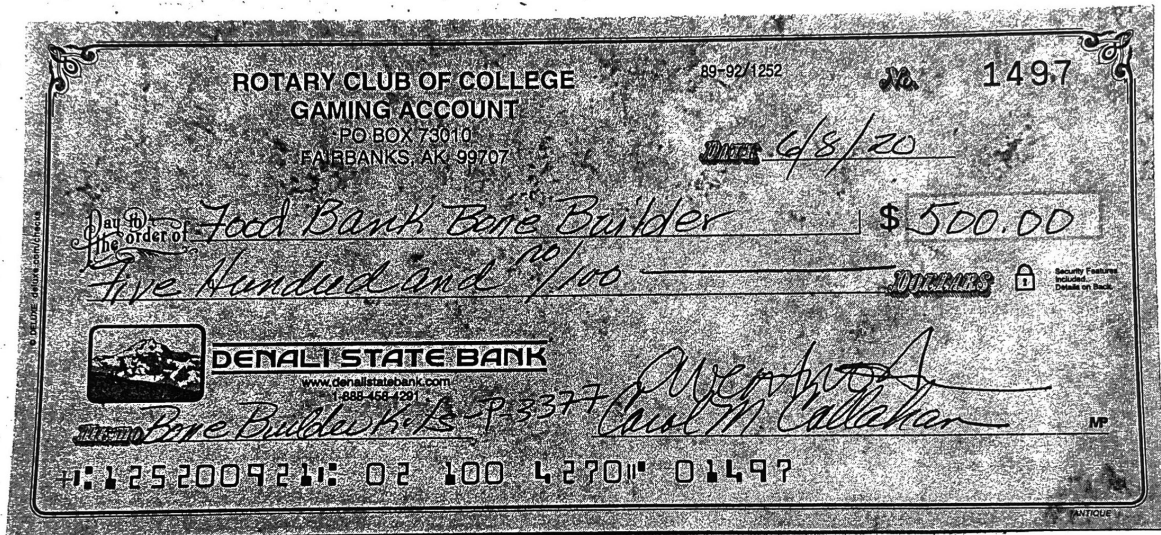 ROTARY CLUB OF COLLEGE
GAMING ACCOUNT
PO BOX 73010
FAIRBANKS, AK 99707
89-92/1252
No. 1497
DATE 6/8/20
Pay to the order of Food Bank Bone Builder $ 500.00
Five Hundred and no/100 DOLLARS
Security Features Included. Details on Back.
DENALI STATE BANK
www.denalistatebank.com
1-888-458-4291
MEMO Bone Builder Kits P-3377
Carol M. Callahan
MP
⑆125200921⑆ 02 100 4270⑈ 01497
ANTIQUE